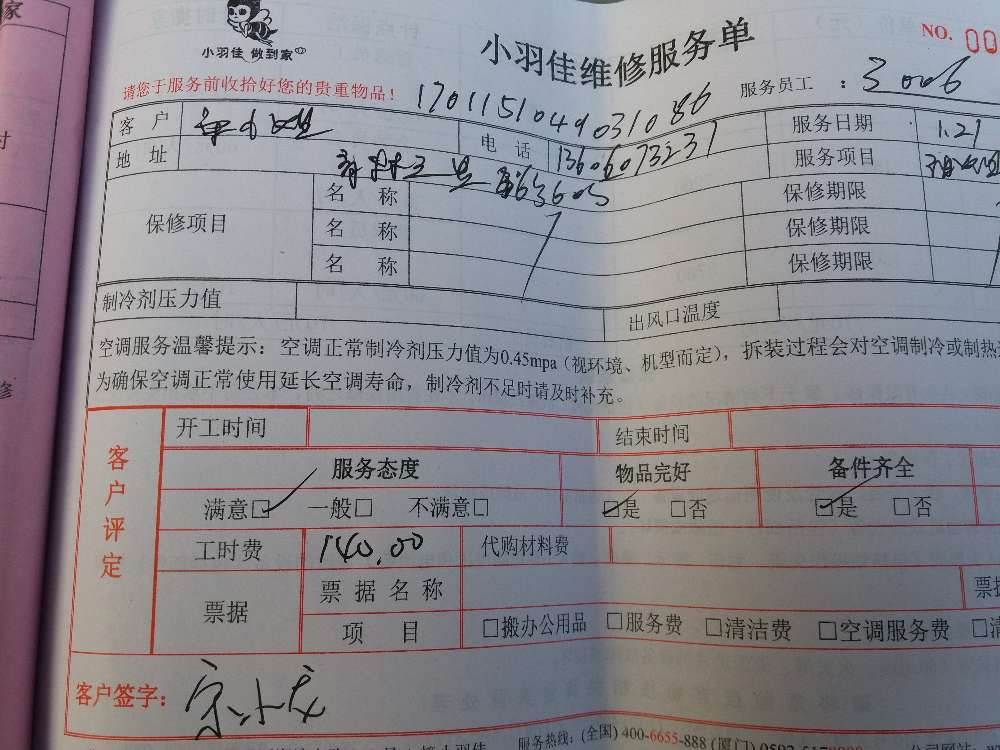 家
小羽佳 做到家
小羽佳维修服务单
NO. 00
请您于服务前收拾好您的贵重物品！
1701151049031086
服务员工 ： 3006
客 户
电 话
服务日期 1.21
地 址
服务项目
保修项目
名 称
保修期限
名 称
保修期限
名 称
保修期限
制冷剂压力值
出风口温度
空调服务温馨提示：空调正常制冷剂压力值为0.45mpa（视环境、机型而定），拆装过程会对空调制冷或制热
为确保空调正常使用延长空调寿命，制冷剂不足时请及时补充。
客户评定
开工时间
结束时间
服务态度 物品完好 备件齐全
满意☑ 一般□ 不满意□ ☑是 □否 ☑是 □否
工时费 140.00 代购材料费
票据
票据名称
票
项 目 □搬办公用品 □服务费 □清洁费 □空调服务费
客户签字：
服务热线：(全国) 400-6655-888 (厦门)
修